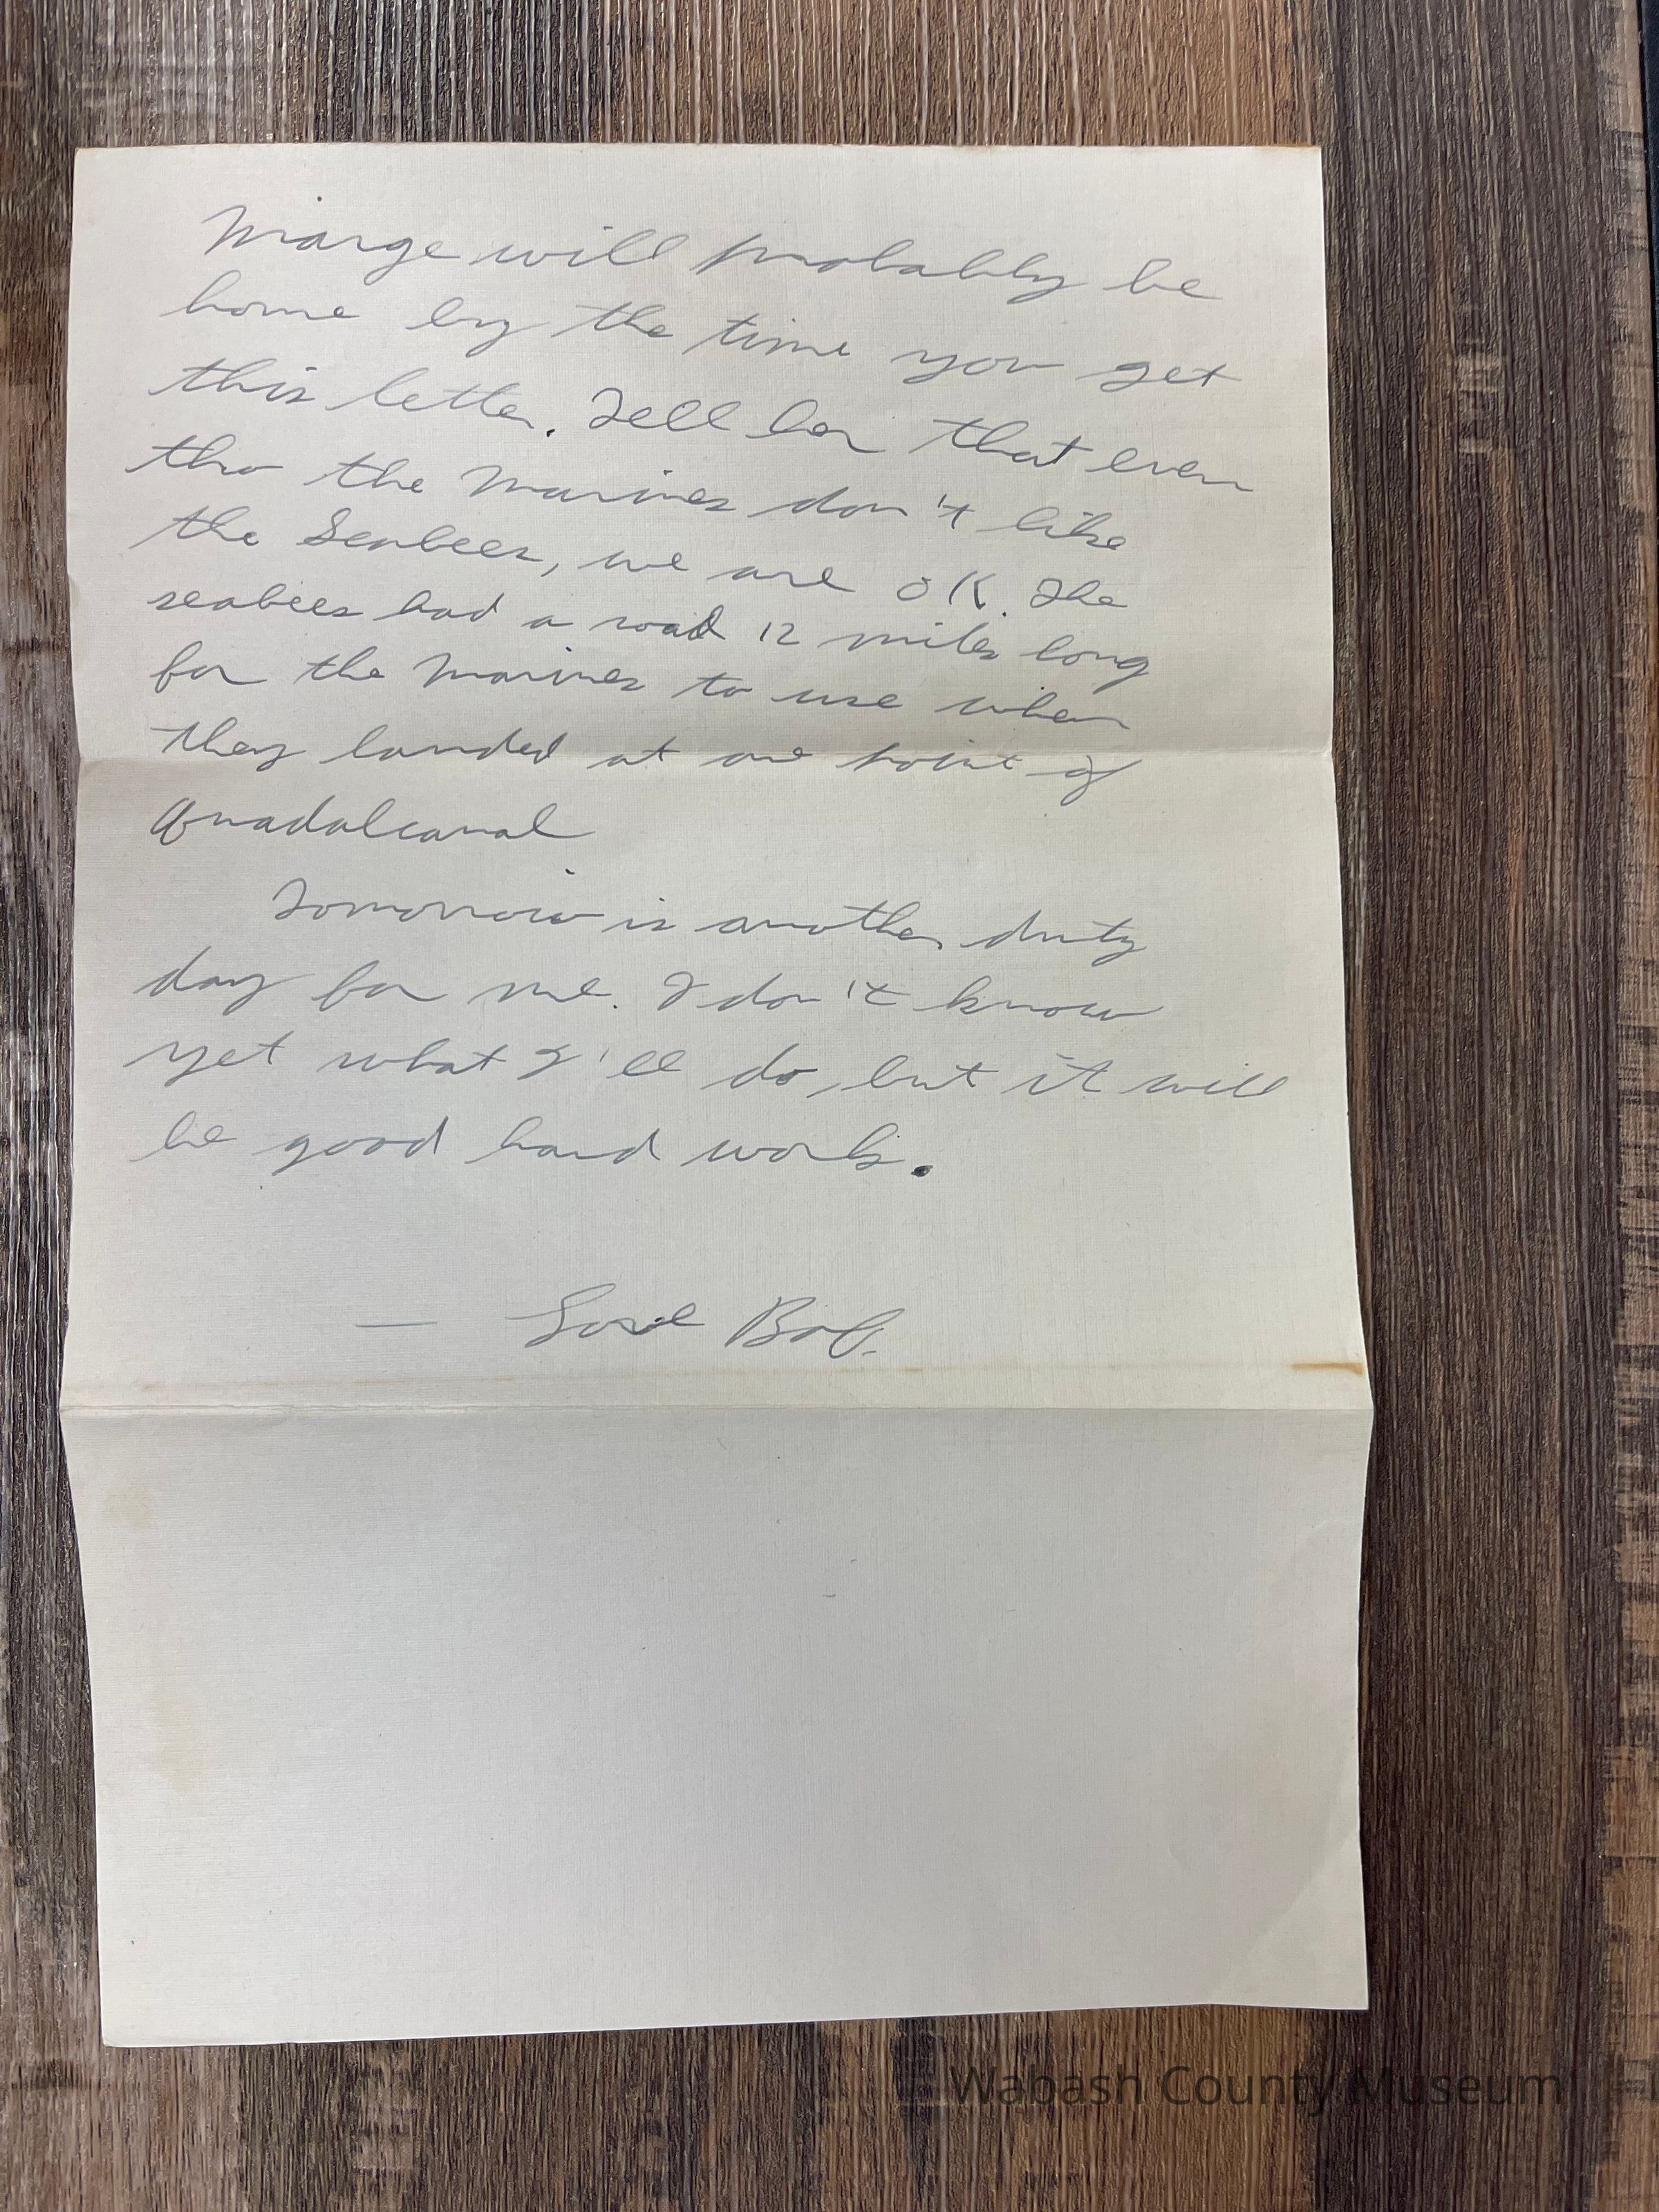 Marge will probably be
home by the time you get
this letter. Tell her that even
tho the Marines don't like
the Seabees, we are OK. The
seabees had a road 12 miles long
for the Marines to use when
they landed at one point of
Guadalcanal
Tomorrow is another duty
day for me. I don't know
yet what I'll do, but it will
be good hard work.
— Love Bob.
Wabash County Museum